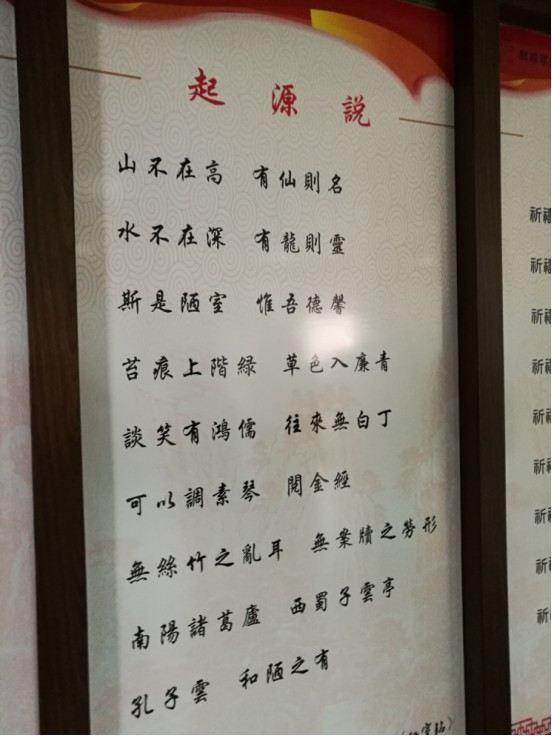 起源說
山不在高 有仙則名
水不在深 有龍則靈
斯是陋室 惟吾德馨
苔痕上階緑 草色入廉青
談笑有鴻儒 往來無白丁
可以調素琴 閱金經
無絲竹之亂耳 無案牘之勞形
南陽諸葛廬 西蜀子雲亭
孔子雲 和陋之有
祈福
祈福
祈
祈
祈
祈
祈
祈
祈